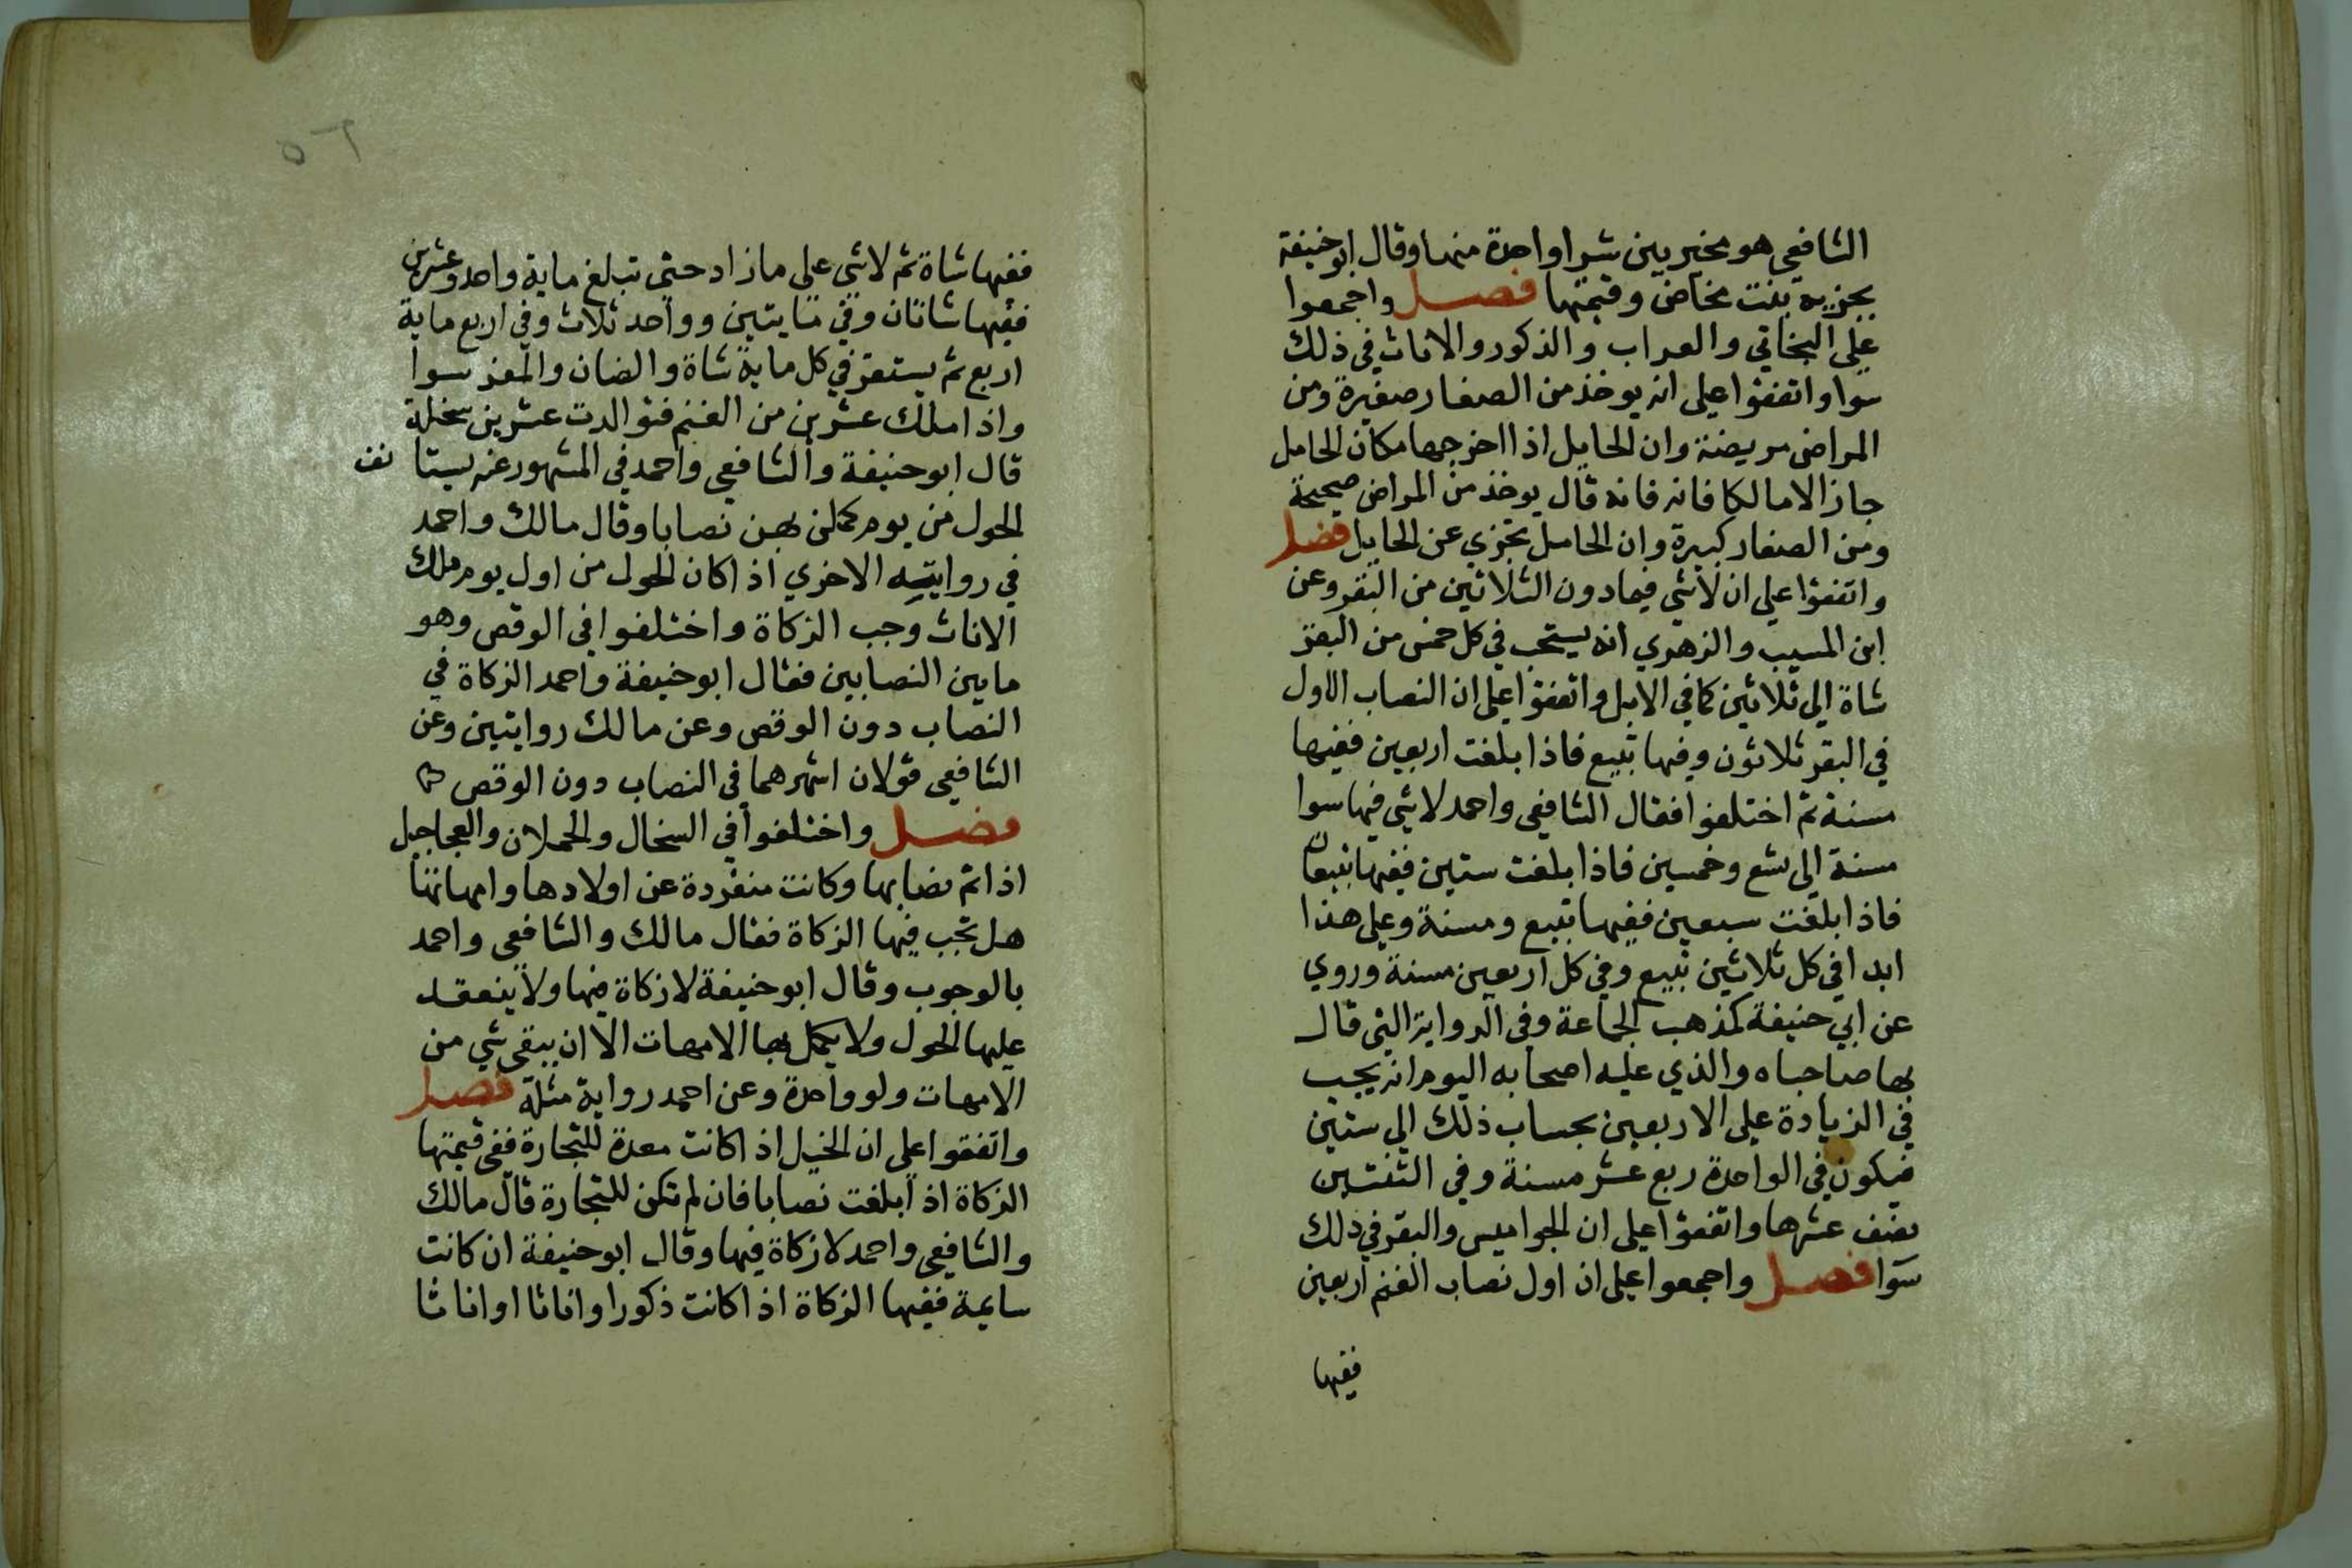 الشافعي هو مخير بين شرا واحدة منها وقال ابو حنيفة
يجزيه بنت مخاض وقيمتها فصل واجمعوا
على البخاتي والعراب والذكور والاناث في ذلك
سوا واتفقوا على انه يوخذ من الصغار صغيرة ومن
المراض مريضة وان الحايل اذا اخرجها مكان الحامل
جاز الا مالكا فانه فانه قال يوخذ من المراض صحيحة
ومن الصغار كبيرة وان الحامل تجزي عن الحايل فصل
واتفقوا على ان لا شي فيما دون الثلاثين من البقر وعن
ابن المسيب والزهري انه يستحب في كل خمس من البقر
شاة الي ثلاثين كما في الابل واتفقوا على ان النصاب الاول
في البقر ثلاثون وفيها تبيع فاذا بلغت اربعين ففيها
مسنة ثم اختلفوا فقال الشافعي واحمد لا شي فيها سوا
مسنة الي تسع وخمسين فاذا بلغت ستين ففيها تبيعان
فاذا بلغت سبعين ففيها تبيع ومسنة وعلى هذا
ابدا في كل ثلاثين تبيع وفي كل اربعين مسنة وروي
عن ابي حنيفة كمذهب الجماعة وفي الرواية التي قال
بها صاحباه والذي عليه اصحابه اليوم انه يجب
في الزيادة على الاربعين بحساب ذلك الي ستين
فيكون في الواحدة ربع عشر مسنة وفي الثنتين
نصف عشرها واتفقوا على ان الجواميس والبقر في ذلك
سوا فصل واجمعوا على ان اول نصاب الغنم اربعين
ففيها
٥٦
ففيها شاة ثم لا شي على ما زاد حتى تبلغ ماية واحد وعشرين
ففيها شاتان وفي مايتين وواحد ثلاث وفي اربع ماية
اربع ثم يستقر في كل ماية شاة والضان والمعز سوا
واذا ملك عشرين من الغنم فتوالدت عشرين سخلة
قال ابو حنيفة والشافعي واحمد في المشهور عنه يستا نف
الحول من يوم كملن بهن نصابا وقال مالك واحمد
في روايته الاخري اذا كان الحول من اول يوم ملك
الاناث وجب الزكاة واختلفوا في الوقص وهو
ما بين النصابين فقال ابو حنيفة واحمد الزكاة في
النصاب دون الوقص وعن مالك روايتين وعن
الشافعي قولان اشهرهما في النصاب دون الوقص
فصل واختلفوا في السخال والحملان والعجاجيل
اذا تم نصابها وكانت منفردة عن اولادها وامهاتها
هل تجب فيها الزكاة فقال مالك والشافعي واحمد
بالوجوب وقال ابو حنيفة لا زكاة فيها ولا ينعقد
عليها الحول ولا يكمل بها الامهات الا ان يبقى شي من
الامهات ولو واحدة وعن احمد رواية مثله فصل
واتفقوا على ان الخيل اذا كانت معدة للتجارة ففي قيمتها
الزكاة اذا بلغت نصابا فان لم تكن للتجارة قال مالك
والشافعي واحمد لا زكاة فيها وقال ابو حنيفة ان كانت
سايمة ففيها الزكاة اذا كانت ذكورا واناثا او اناثا